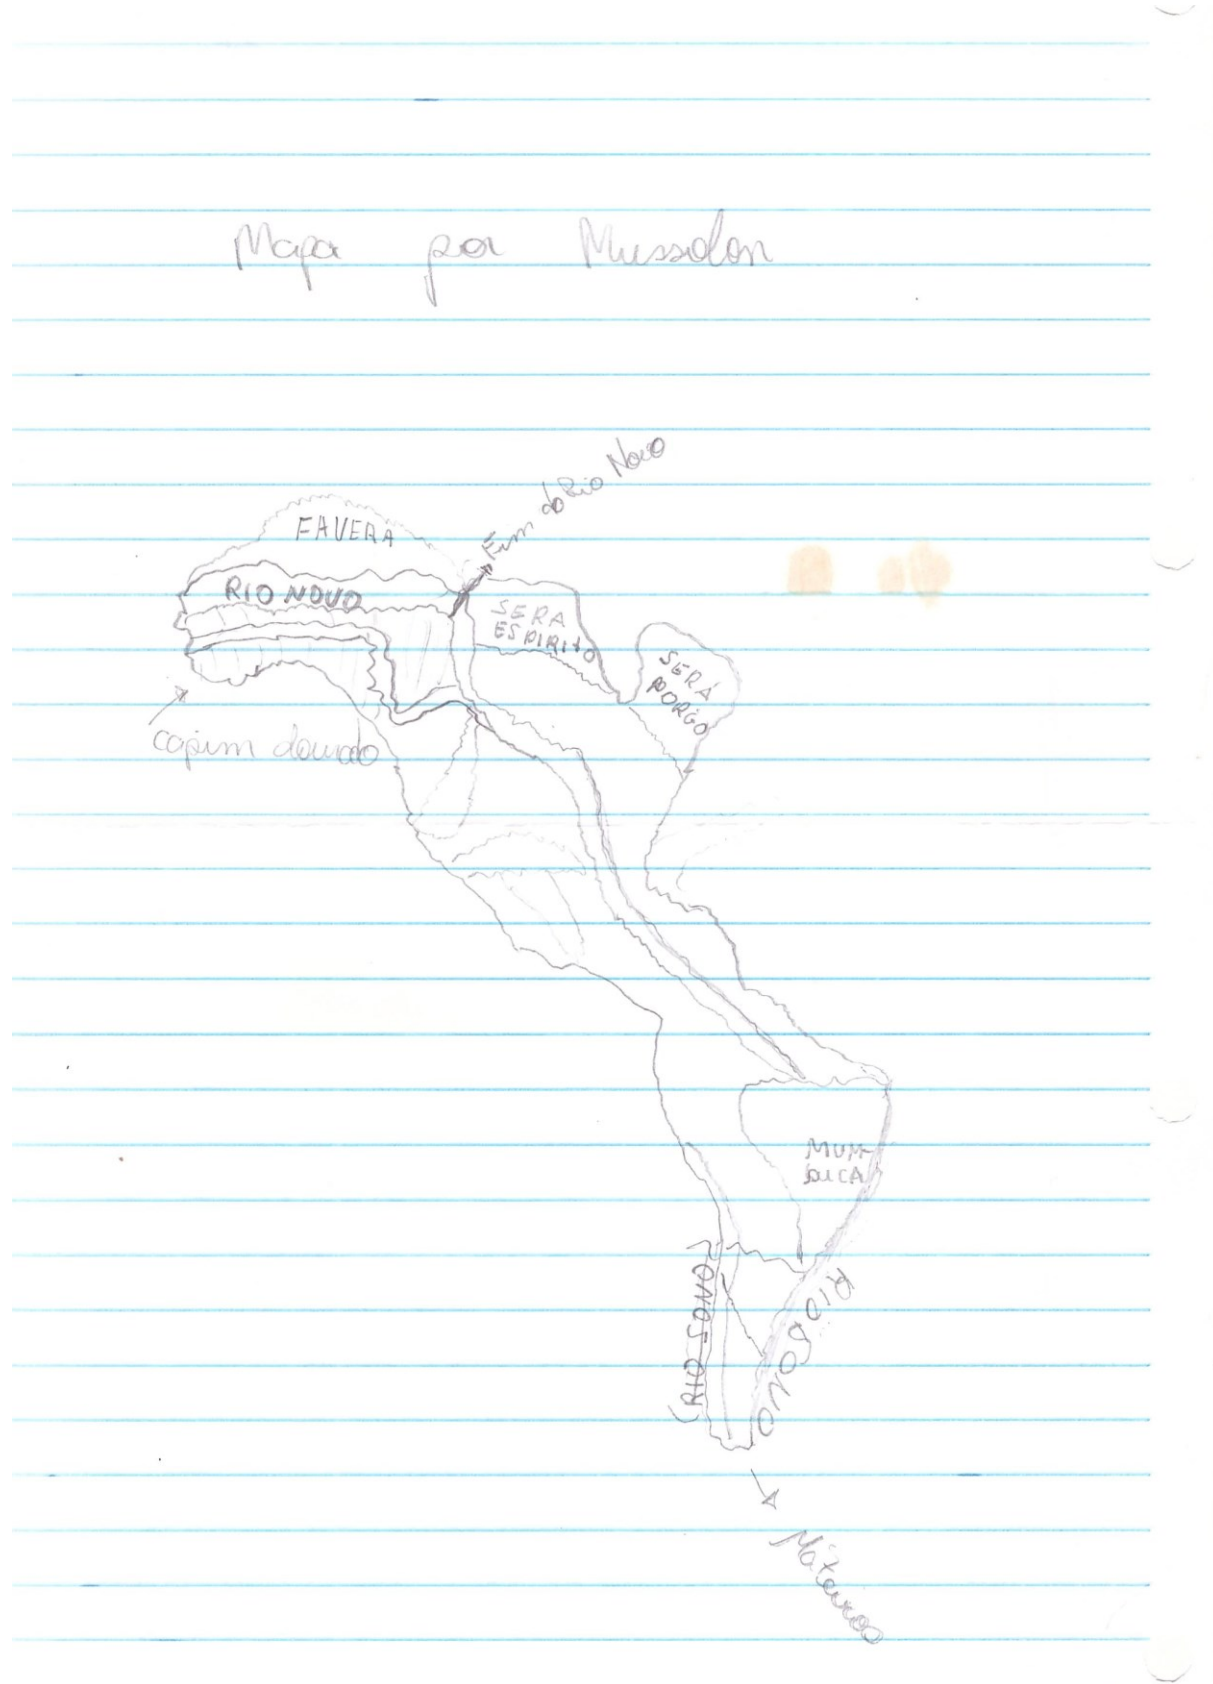 Mapa por Mussolon
Fim do Rio Novo
FAVERA
RIO NOVO
SERA
ESPIRITO
SERÁ
PORCO
capim dourado
MUM
BUCA
RIO SONO
RIO SONO
Mateiros